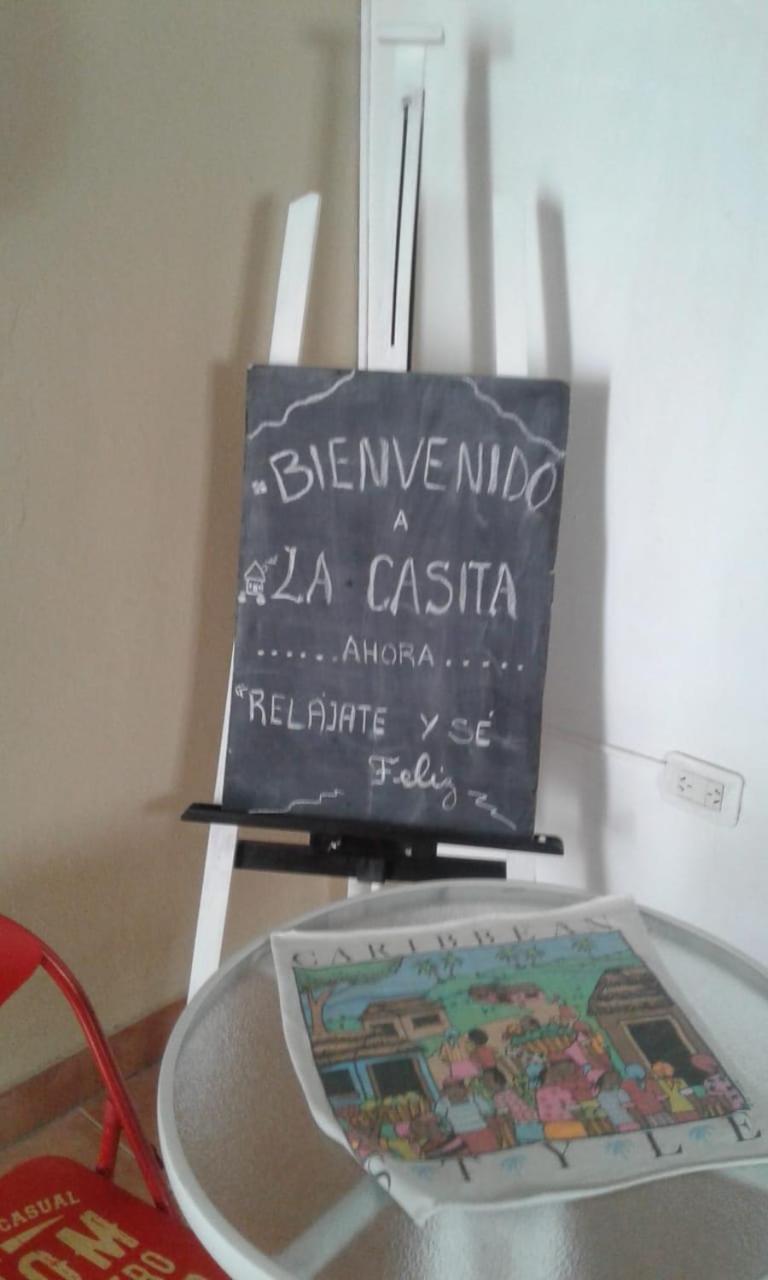 BIENVENIDO
A
LA CASITA
......AHORA.....
"RELÁJATE Y SÉ
Feliz
CARIBBEAN
STYLE
CASUAL